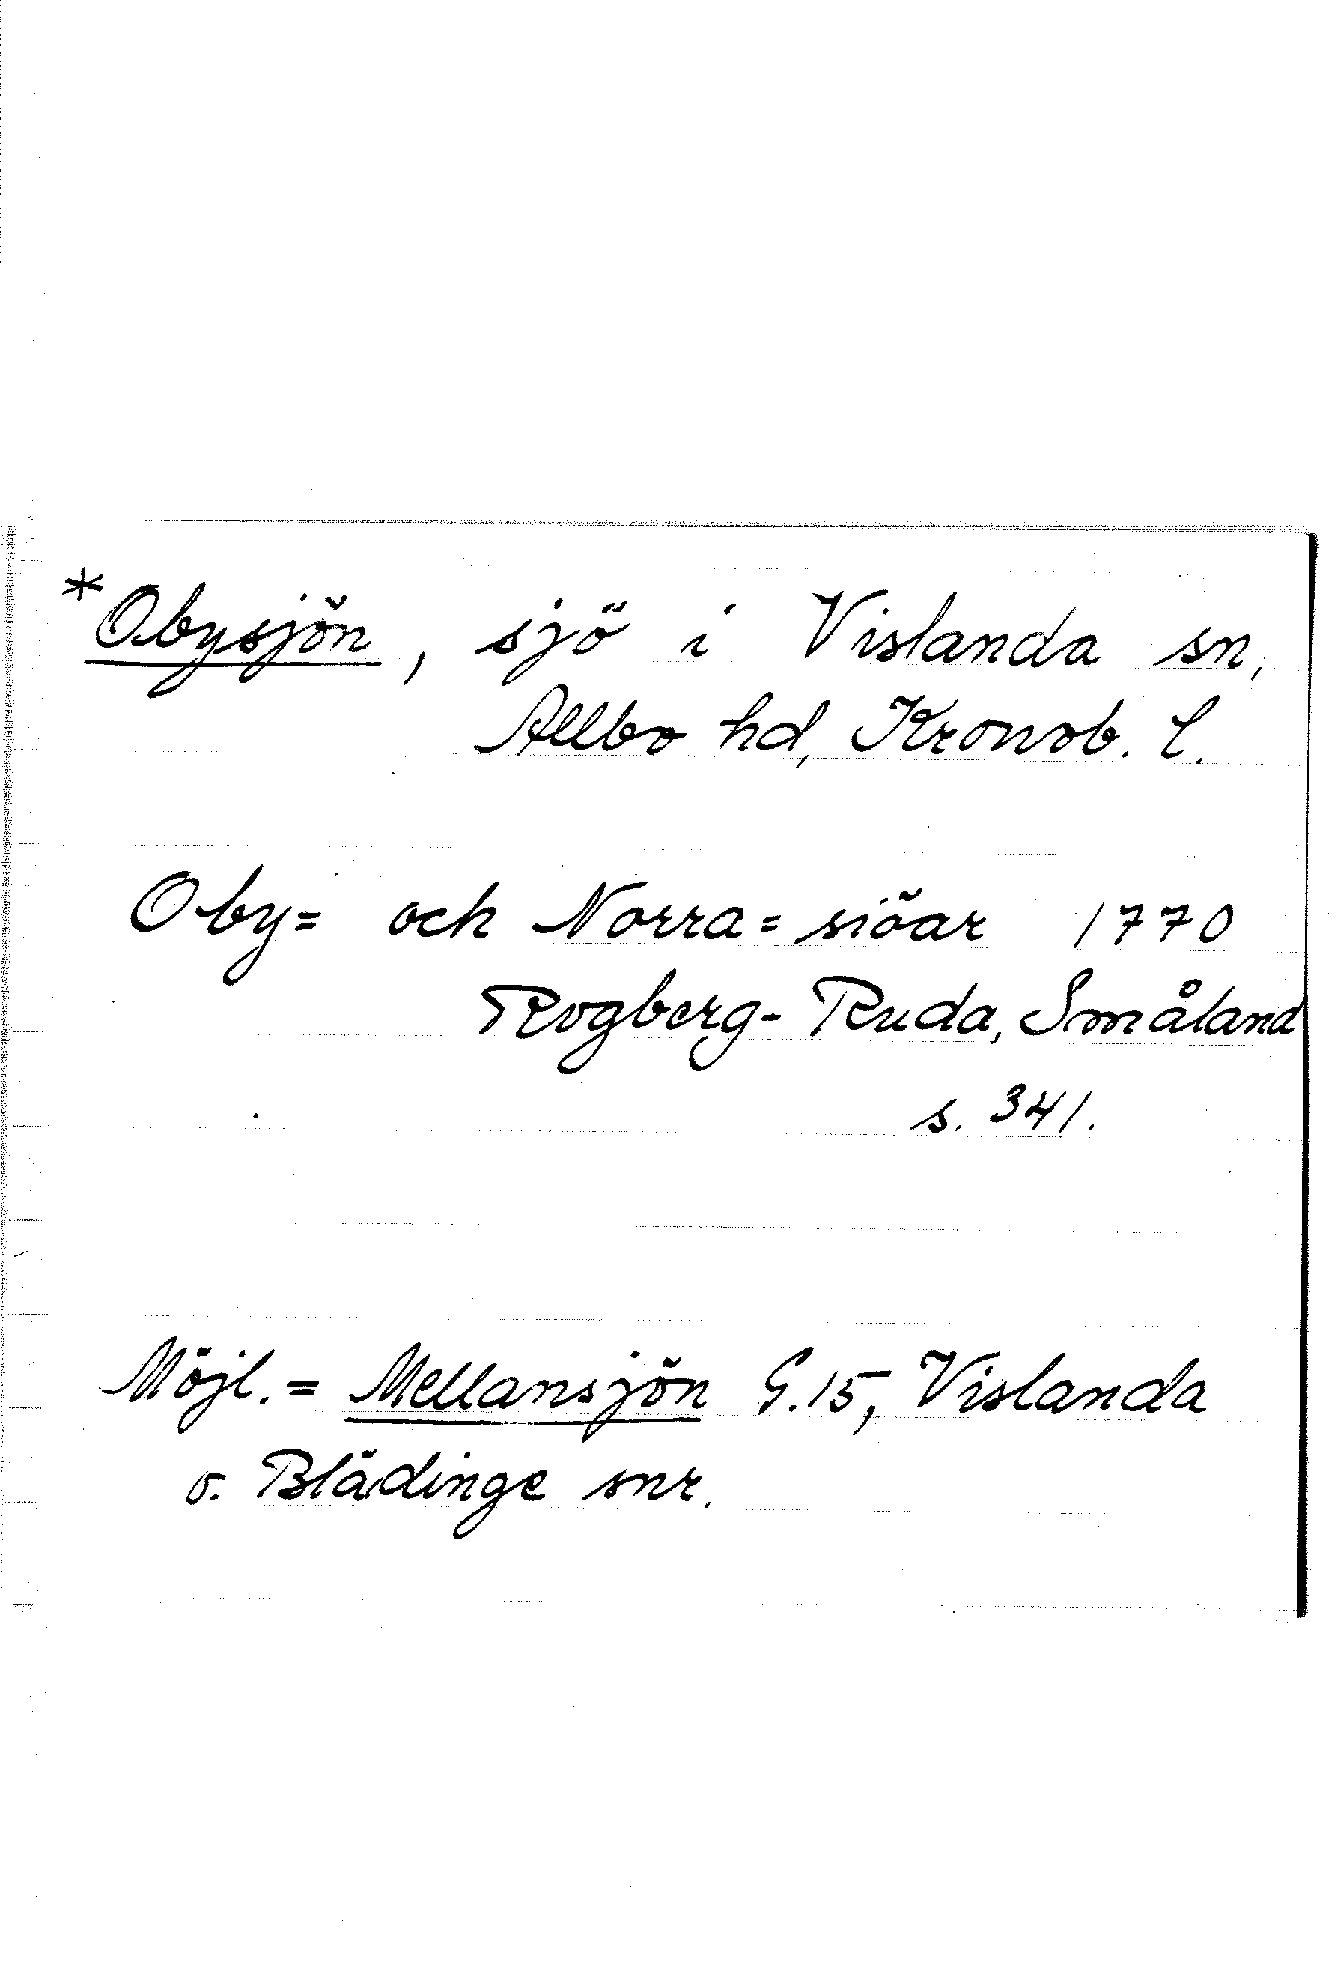 *Obysjön, sjö i Vislanda sn,
Allbo hd, Kronob. l.
Oby= och Norra= siöar 1770
Rogberg-Ruda, Småland
s. 341.
Möjl. = Mellansjön G.15, Vislanda
o. Blädinge snr.